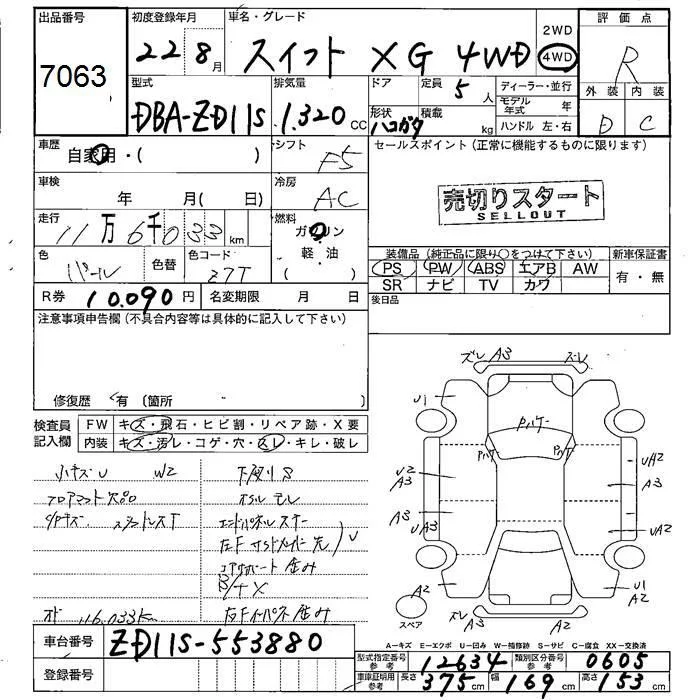 出品番号 初度登録年月 車名・グレード 2WD 評価点
7063 22 8月 スイフト XG 4WD 4WD R
型式 排気量 ドア 定員 5人 ディーラー・並行 外装 内装
DBA-ZD11S 1.320cc 形状 ハコガタ 積載 kg モデル年式 年 D C
ハンドル 左・右
車歴 自家用・( ) シフト F5 セールスポイント (正常に機能するものに限ります)
車検 年 月( 日) 冷房 AC 売切りスタート
SELLOUT
走行 11万6千033km 燃料 ガソリン
軽・油
( )
装備品 (純正品に限り○をつけて下さい) 新車保証書
色 パール 色替 色コード Z7T PS PW ABS エアB AW 有・無
SR ナビ TV カワ
R券 10.090円 名変期限 月 日 後日品
注意事項申告欄 (不具合内容等は具体的に記入して下さい)
修復歴 有 (箇所
ズレ A3 ズレ
検査員記入欄 FW キズ・飛石・ヒビ割・リペア跡・X要
内装 キズ・汚レ・コゲ・穴・スレ・キレ・破レ
U1
Pハケー
Pハケ Pハケ
小キズU W2 下廻りS
U2 A3 UA2
A3
フロアマット欠品 オイルモレ
A3 UA3 UA2
エンドパネルスキー
コアサポート歪み
A2 U1 A2
オド 116.033km
スペア ズレ A3 A2
A—キズ E—エクボ U—凹み W—補修跡 S—サビ C—腐食 XX—交換済
車台番号 ZD11S-553880
型式指定番号 参考 12634 類別区分番号 参考 0605
登録番号 車庫証明用 参考 長さ 375cm 幅 169cm 高さ 153cm